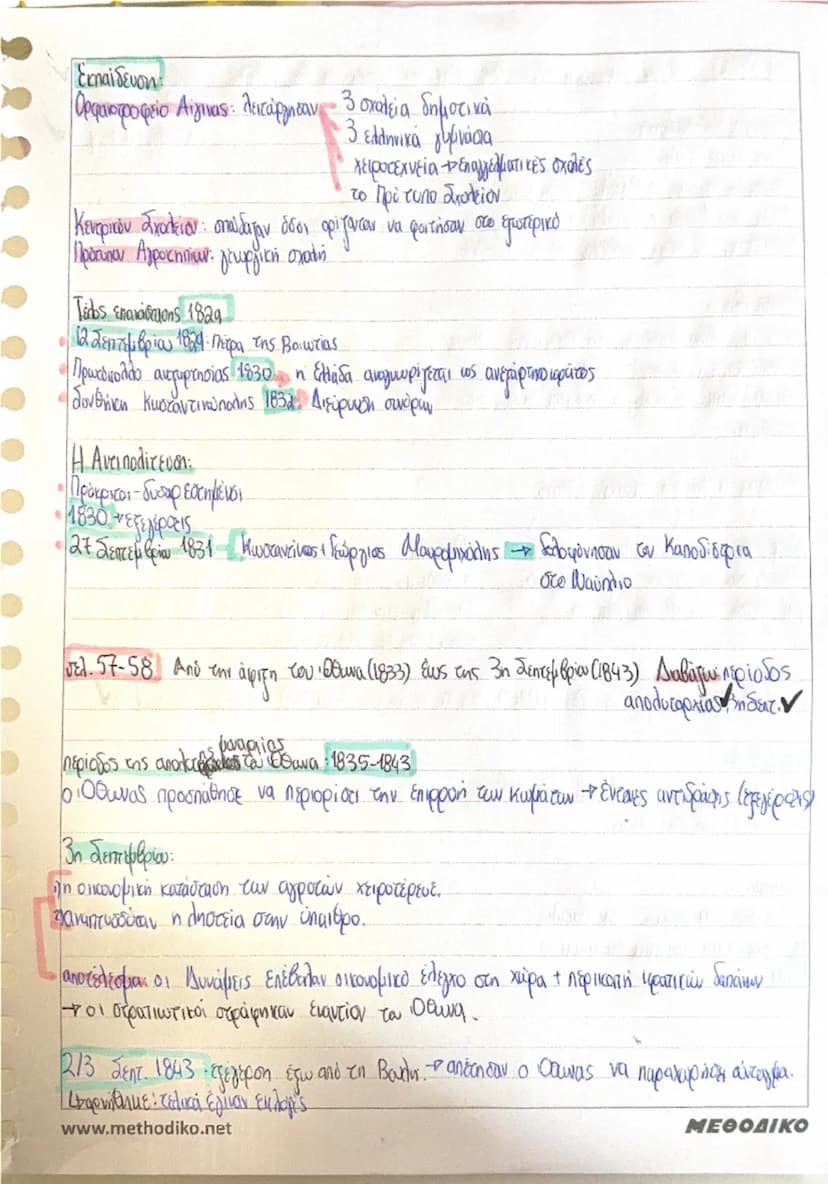 Εκπαίδευση:
Ορφανοτροφείο Αίγινας: λειτούργησαν 3 σχολεία δημοτικά
3 ελληνικά γυμνάσια
χειροτεχνεία → επαγγελματικές σχολές
το Πρότυπο Σχολείον
Κεντρικόν Σχολείον: σπούδαζαν όσοι ορίζονταν να φοιτήσουν στο εξωτερικό
Πρότυπον Αγροκήπιον: γεωργική σχολή
Τέλος επανάστασης 1829
• 12 Σεπτεμβρίου 1829: Πέτρα της Βοιωτίας
• Πρωτόκολλο ανεξαρτησίας 1830 → η Ελλάδα αναγνωρίζεται ως ανεξάρτητο κράτος
• Συνθήκη Κωσταντινούπολης 1832: Διεύρυνση συνόρων
Η Αντιπολίτευση:
• Πρόκριτοι - δυσαρεστημένοι
• 1830 → εξεγέρσεις
• 27 Σεπτεμβρίου 1831 Κωσταντίνος + Γεώργιος Μαυρομιχάλης → δολοφόνησαν τον Καποδίστρια
στο Ναύπλιο
σελ. 57-58 Από την άφιξη του Όθωνα (1833) έως της 3η Σεπτεμβρίου (1843) Διαβάζω: περίοδος
απολυταρχίας ✓ 3η Σεπτ. ✓
περίοδος της απολυταρχίας του Όθωνα: 1835-1843
ο Όθωνας προσπάθησε να περιορίσει την επιρροή των κομμάτων → έντονες αντιδράσεις (εξεγέρσεις)
3η Σεπτεμβρίου:
1) η οικονομική κατάσταση των αγροτών χειροτέρευε.
2) αναπτυσσόταν η ληστεία στην ύπαιθρο.
αποτέλεσμα: οι Δυνάμεις επέβαλαν οικονομικό έλεγχο στη χώρα + περικοπή κρατικών δαπανών
→ οι στρατιωτικοί στράφηκαν εναντίον του Όθωνα.
2/3 Σεπτ. 1843: εξέγερση έξω από τη Βουλή. → απαίτησαν ο Όθωνας να παραχωρήσει σύνταγμα.
τελικά έγιναν εκλογές
www.methodiko.net ΜΕΘΟΔΙΚΟ